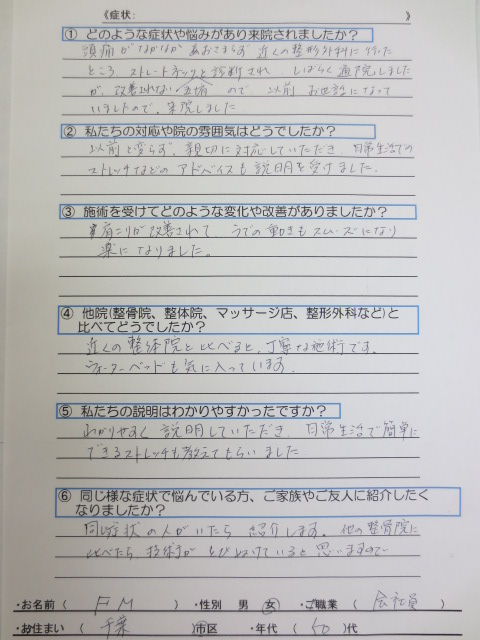 《症状: 》
① どのような症状や悩みがあり来院されましたか?
頭痛がなかなか なおさまらず 近くの整形外科に行った
ところ、ストレートネックと診断され、しばらく通院しました
が、改善されない ので、以前 お世話になって
いましたので、来院しました
② 私たちの対応や院の雰囲気はどうでしたか?
以前と変らず、親切に対応していただき、日常生活での
ストレッチなどのアドバイスも説明を受けました。
③ 施術を受けてどのような変化や改善がありましたか?
肩こりが改善されて、うでの動きもスムーズになり
楽になりました。
④ 他院(整骨院、整体院、マッサージ店、整形外科など)と
比べてどうでしたか?
近くの整体院と比べると、丁寧な施術です。
ウォーターベッドも気に入っています。
⑤ 私たちの説明はわかりやすかったですか?
わかりやすく説明していただき、日常生活で簡単に
できるストレッチも教えてもらいました
⑥ 同じ様な症状で悩んでいる方、ご家族やご友人に紹介したく
なりましたか?
同じ症状の人がいたら 紹介します。他の整骨院に
比べたら 技術が とびぬけていると思いますので
・お名前 ( F M ) ・性別 男 女 ・ご職業 ( 会社員 )
・お住まい ( 千葉 ) 市区 ・年代 ( 50 )代